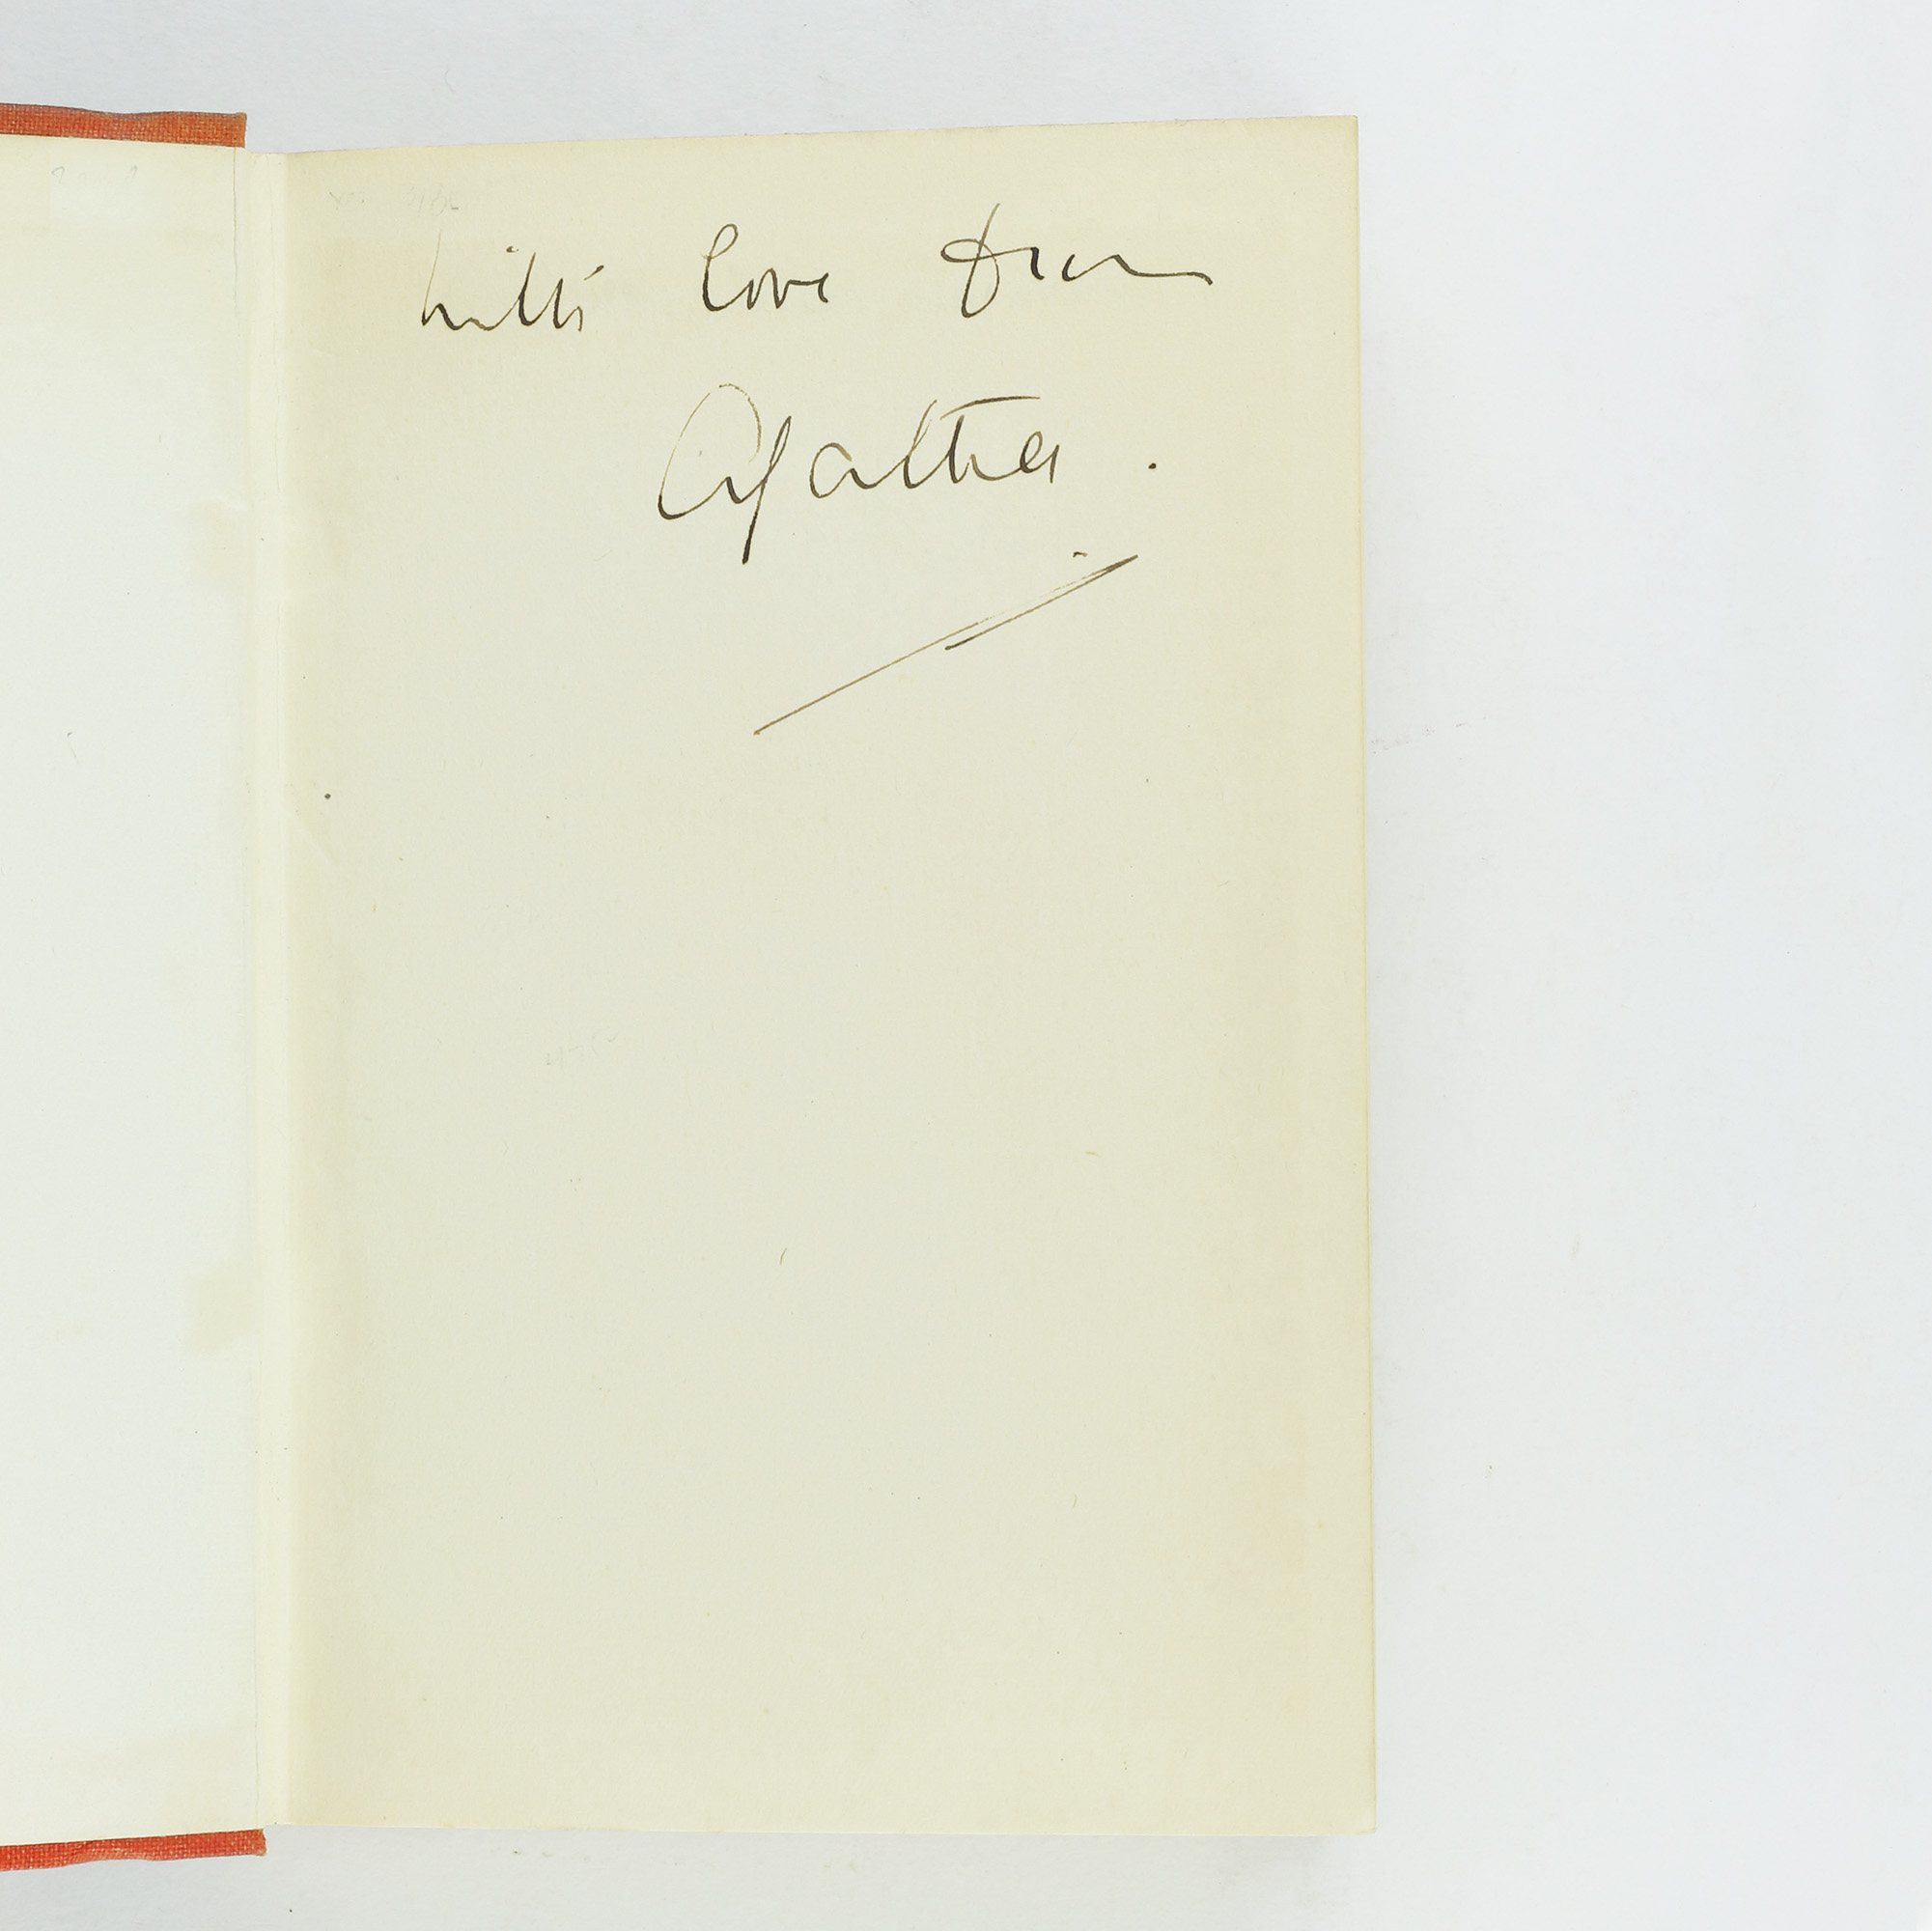 with love from
Agatha.